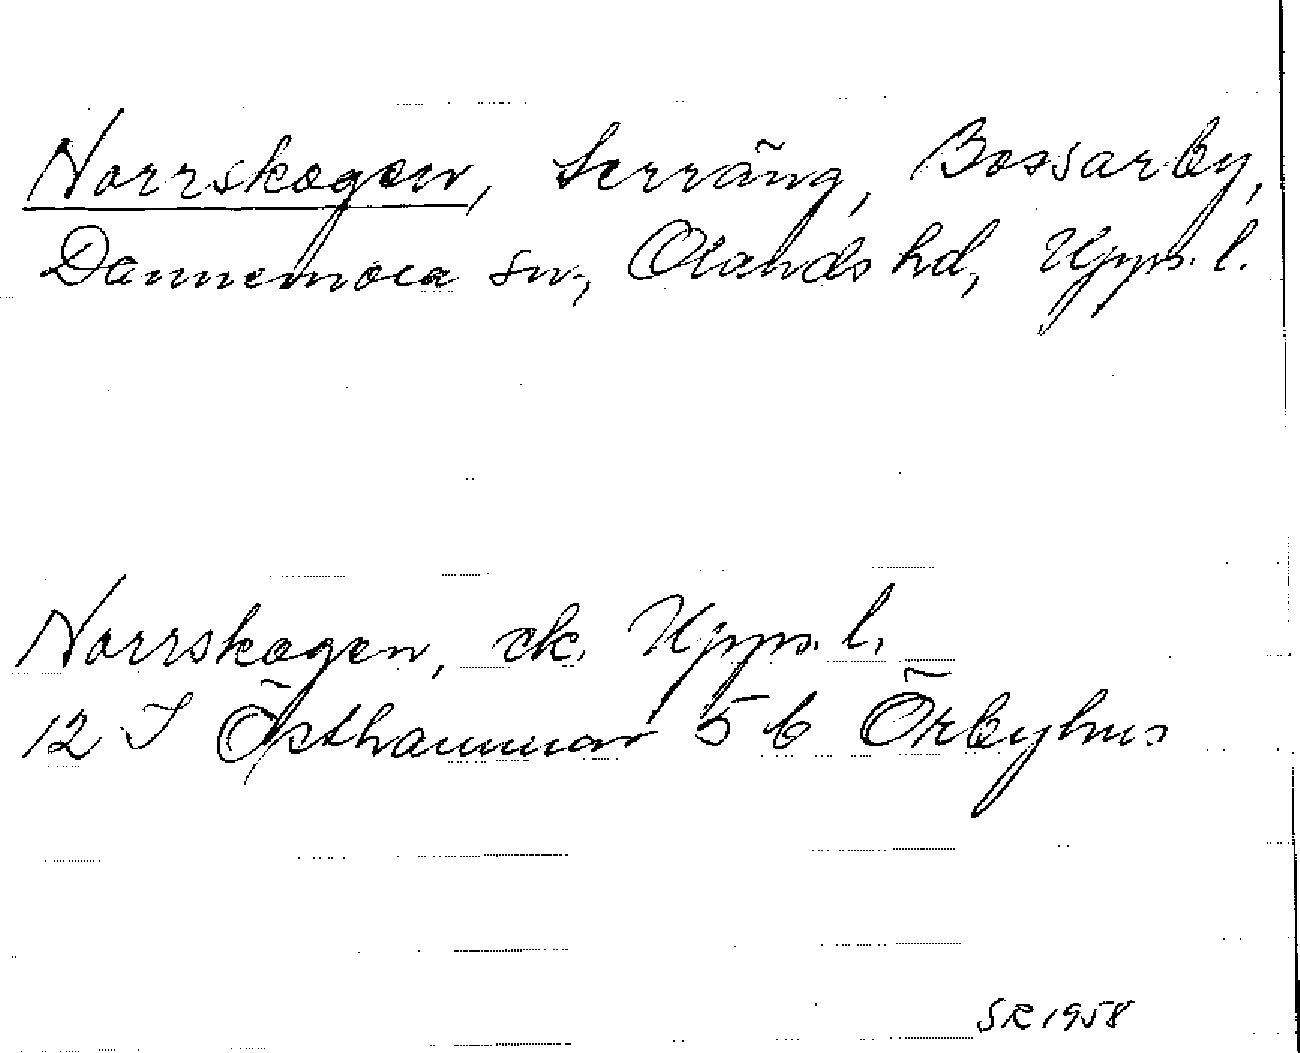 Norrskogen, terräng, Bossarby,
Dannemora sn, Olands hd, Upps. l.
Norrskogen, ek. Upps. l.
12 I Östhammar 5 b Örbyhus
SR 1958